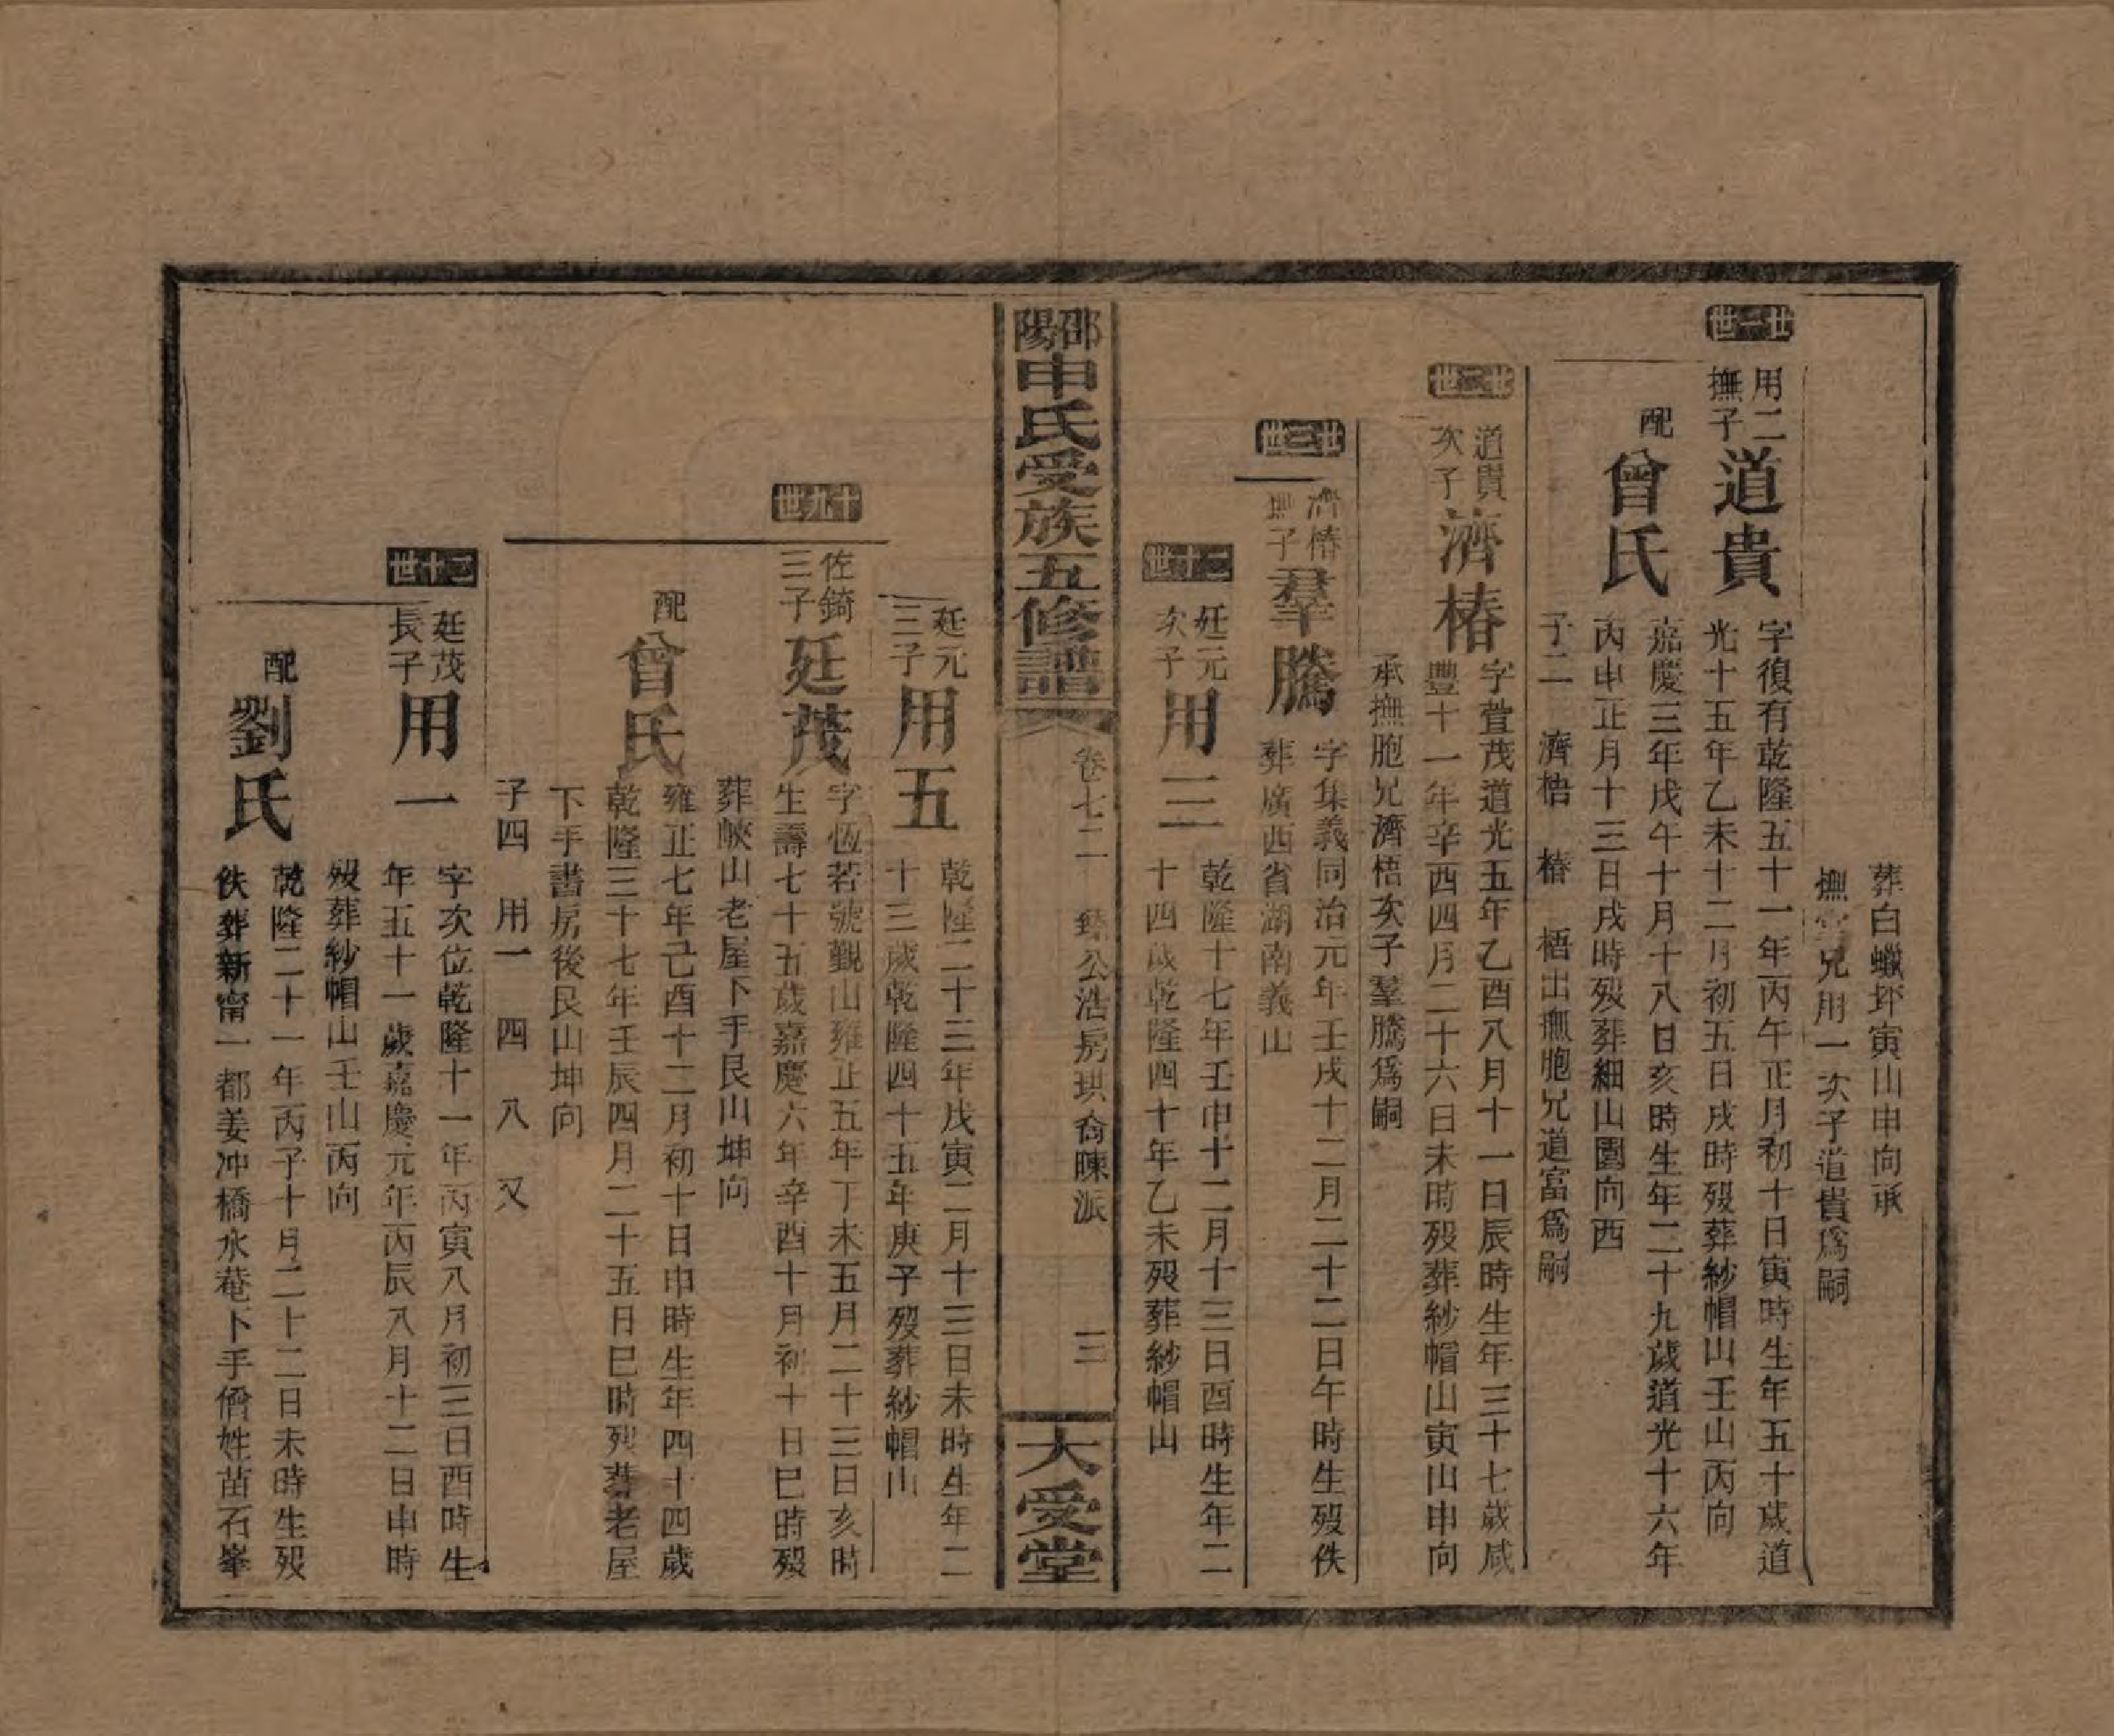 葬白蠟坪寅山申向承
撫堂兄用一次子道貴爲嗣
廿一世
用二撫子
道貴
字復有乾隆五十一年丙午正月初十日寅時生年五十歲道
光十五年乙未十二月初五日戌時歿葬紗帽山壬山丙向
配
曾氏
嘉慶三年戊午十月十八日亥時生年二十九歲道光十六年
丙申正月十三日戌時歿葬細山園向西
子二 濟梧 椿 梧出撫胞兄道富爲嗣
廿二世
道貴次子
濟椿
字萱茂道光五年乙酉八月十一日辰時生年三十七歲咸
豐十一年辛酉四月二十六日未時歿葬紗帽山寅山申向
承撫胞兄濟梧次子羣騰爲嗣
廿三世
濟椿撫子
羣騰
字集義同治元年壬戌十二月二十二日午時生歿佚
葬廣西省湖南義山
二十世
廷元次子
用三
乾隆十七年壬申十二月十三日酉時生年二
十四歲乾隆四十年乙未歿葬紗帽山
邵陽申氏受族五修譜
卷七二 公浩房珙裔暕派
三
大受堂
廷元三子
用五
乾隆二十三年戊寅二月十三日未時生年二
十三歲乾隆四十五年庚子歿葬紗帽山
十九世
佐錡三子
廷茂
字恆若號觀山雍正五年丁未五月二十三日亥時
生壽七十五歲嘉慶六年辛酉十月初十日巳時歿
葬峽山老屋下手艮山坤向
配
曾氏
雍正七年己酉十二月初十日申時生年四十四歲
乾隆三十七年壬辰四月二十五日巳時歿葬老屋
下手書房後艮山坤向
子四 用一 四 八 又
二十世
廷茂長子
用一
字次位乾隆十一年丙寅八月初三日酉時生
年五十一歲嘉慶元年丙辰八月十二日申時
歿葬紗帽山壬山丙向
配
劉氏
乾隆二十一年丙子十月二十二日未時生歿
佚葬新甯一都姜冲橋水菴下手僧姓苗石峯